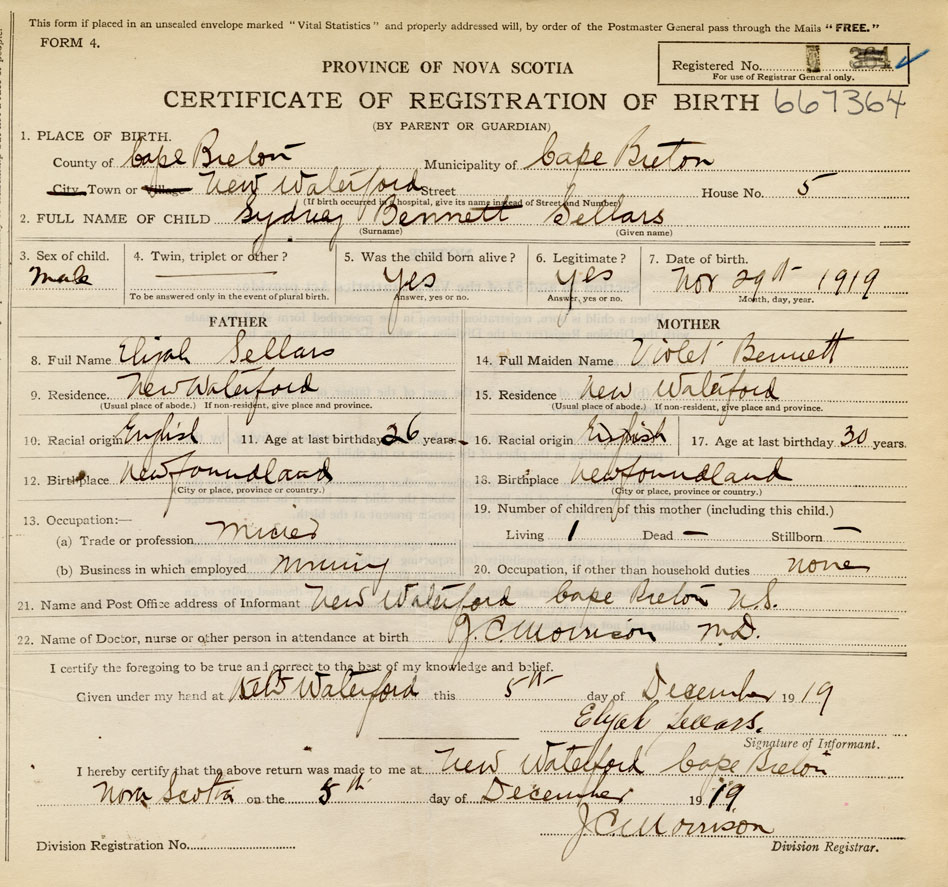 This form if placed in an unsealed envelope marked "Vital Statistics" and properly addressed will, by order of the Postmaster General pass through the Mails "FREE."
FORM 4.
Registered No.
For use of Registrar General only.
PROVINCE OF NOVA SCOTIA
CERTIFICATE OF REGISTRATION OF BIRTH 667364
(BY PARENT OR GUARDIAN)
1. PLACE OF BIRTH.
County of Cape Breton Municipality of Cape Breton
City, Town or Village New Waterford Street House No. 5
(If birth occurred in a hospital, give its name instead of Street and Number)
2. FULL NAME OF CHILD Sydney Bennett Sellars
(Surname) (Given name)
3. Sex of child. 4. Twin, triplet or other? 5. Was the child born alive? 6. Legitimate? 7. Date of birth.
Male Yes Yes Nov 29th 1919
To be answered only in the event of plural birth. Answer, yes or no. Answer, yes or no. Month, day, year.
FATHER MOTHER
8. Full Name Elijah Sellars 14. Full Maiden Name Violet Bennett
9. Residence. New Waterford 15. Residence New Waterford
(Usual place of abode.) If non-resident, give place and province. (Usual place of abode.) If non-resident, give place and province.
10. Racial origin English 11. Age at last birthday 26 years. 16. Racial origin English 17. Age at last birthday 30 years.
12. Birthplace Newfoundland 18. Birthplace Newfoundland
(City or place, province or country.) (City or place, province or country.)
13. Occupation:— 19. Number of children of this mother (including this child.)
(a) Trade or profession Miner Living 1 Dead – Stillborn –
(b) Business in which employed Mining 20. Occupation, if other than household duties none
21. Name and Post Office address of Informant New Waterford Cape Breton N.S.
22. Name of Doctor, nurse or other person in attendance at birth J.C. Morrison M.D.
I certify the foregoing to be true and correct to the best of my knowledge and belief.
Given under my hand at New Waterford this 5th day of December 1919
Elijah Sellars.
Signature of Informant.
I hereby certify that the above return was made to me at New Waterford Cape Breton
Nova Scotia on the 5th day of December 1919
J.C. Morrison
Division Registration No. Division Registrar.